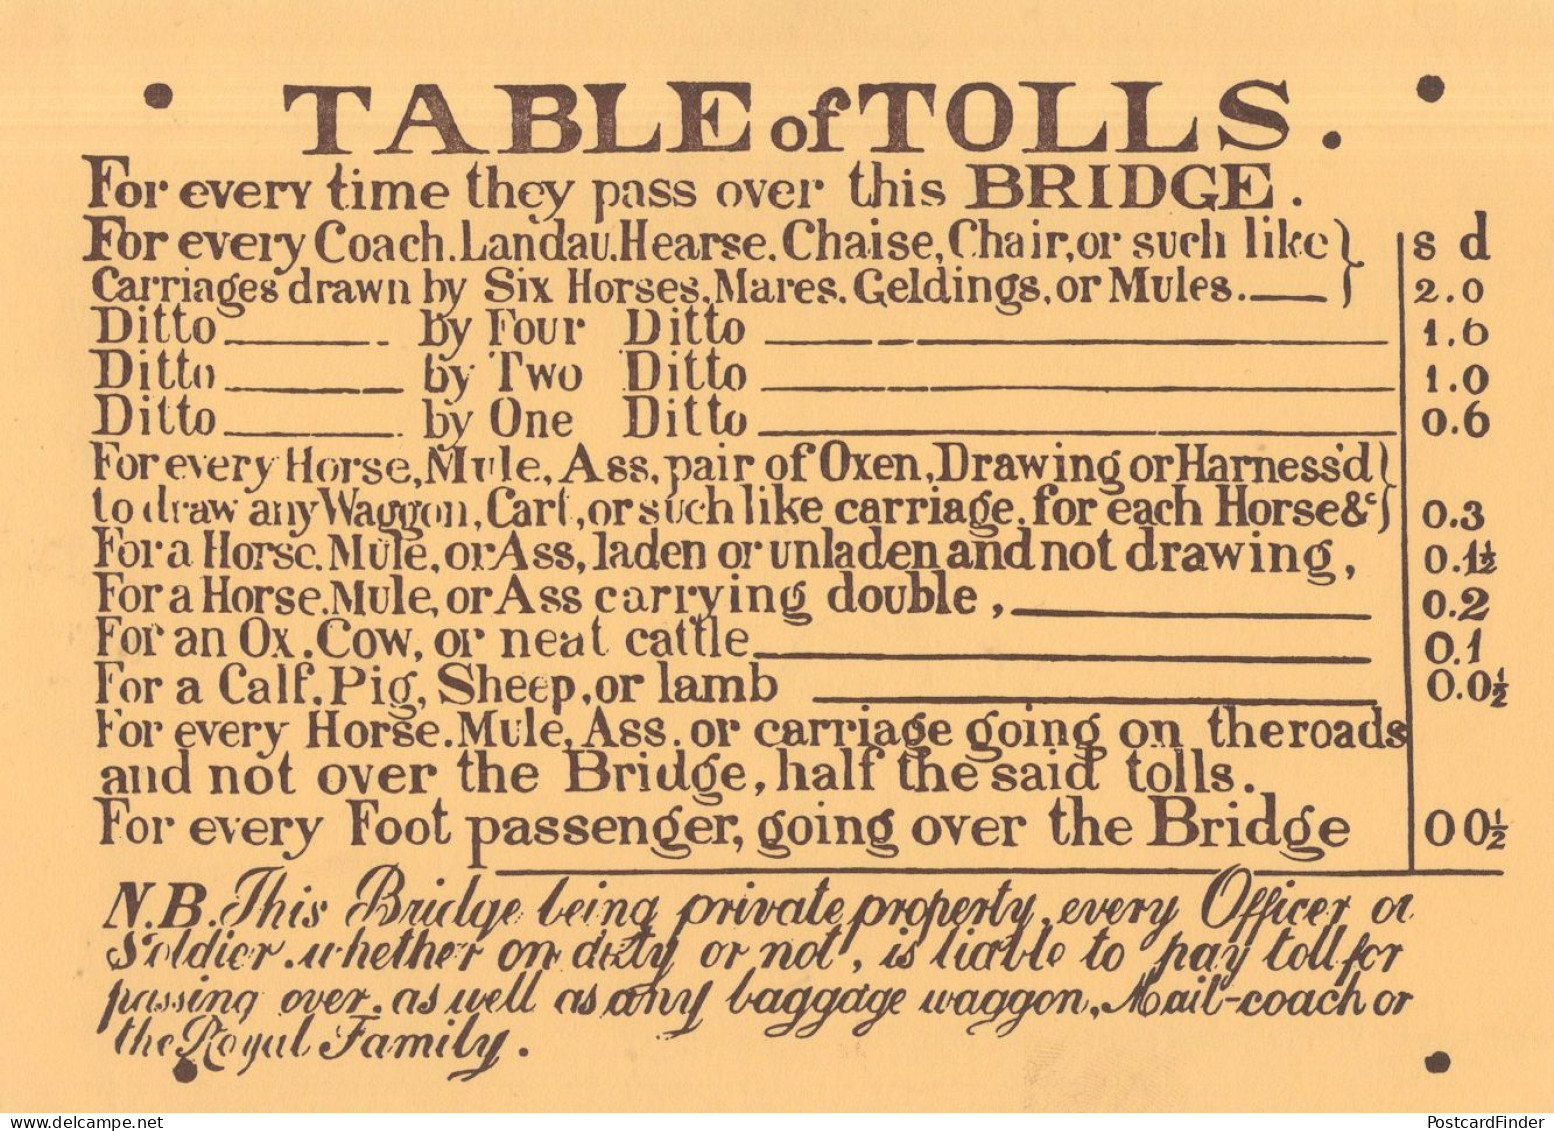 TABLE of TOLLS.
For every time they pass over this BRIDGE.
For every Coach. Landau. Hearse. Chaise, Chair, or such like } s d
Carriages drawn by Six Horses. Mares. Geldings, or Mules. 2.0
Ditto by Four Ditto 1.6
Ditto by Two Ditto 1.0
Ditto by One Ditto 0.6
For every Horse, Mule, Ass, pair of Oxen, Drawing or Harness'd }
to draw any Waggon, Cart, or such like carriage, for each Horse &c 0.3
For a Horse. Mule, or Ass, laden or unladen and not drawing, 0.1½
For a Horse. Mule, or Ass carrying double, 0.2
For an Ox. Cow, or neat cattle 0.1
For a Calf, Pig, Sheep, or lamb 0.0½
For every Horse. Mule, Ass. or carriage going on the roads
and not over the Bridge, half the said tolls.
For every Foot passenger, going over the Bridge 0 0½
N.B. This Bridge being private property, every Officer or
Soldier. whether on duty or not, is liable to pay toll for
passing over. as well as any baggage waggon, Mail-coach or
the Royal Family.
PostcardFinder